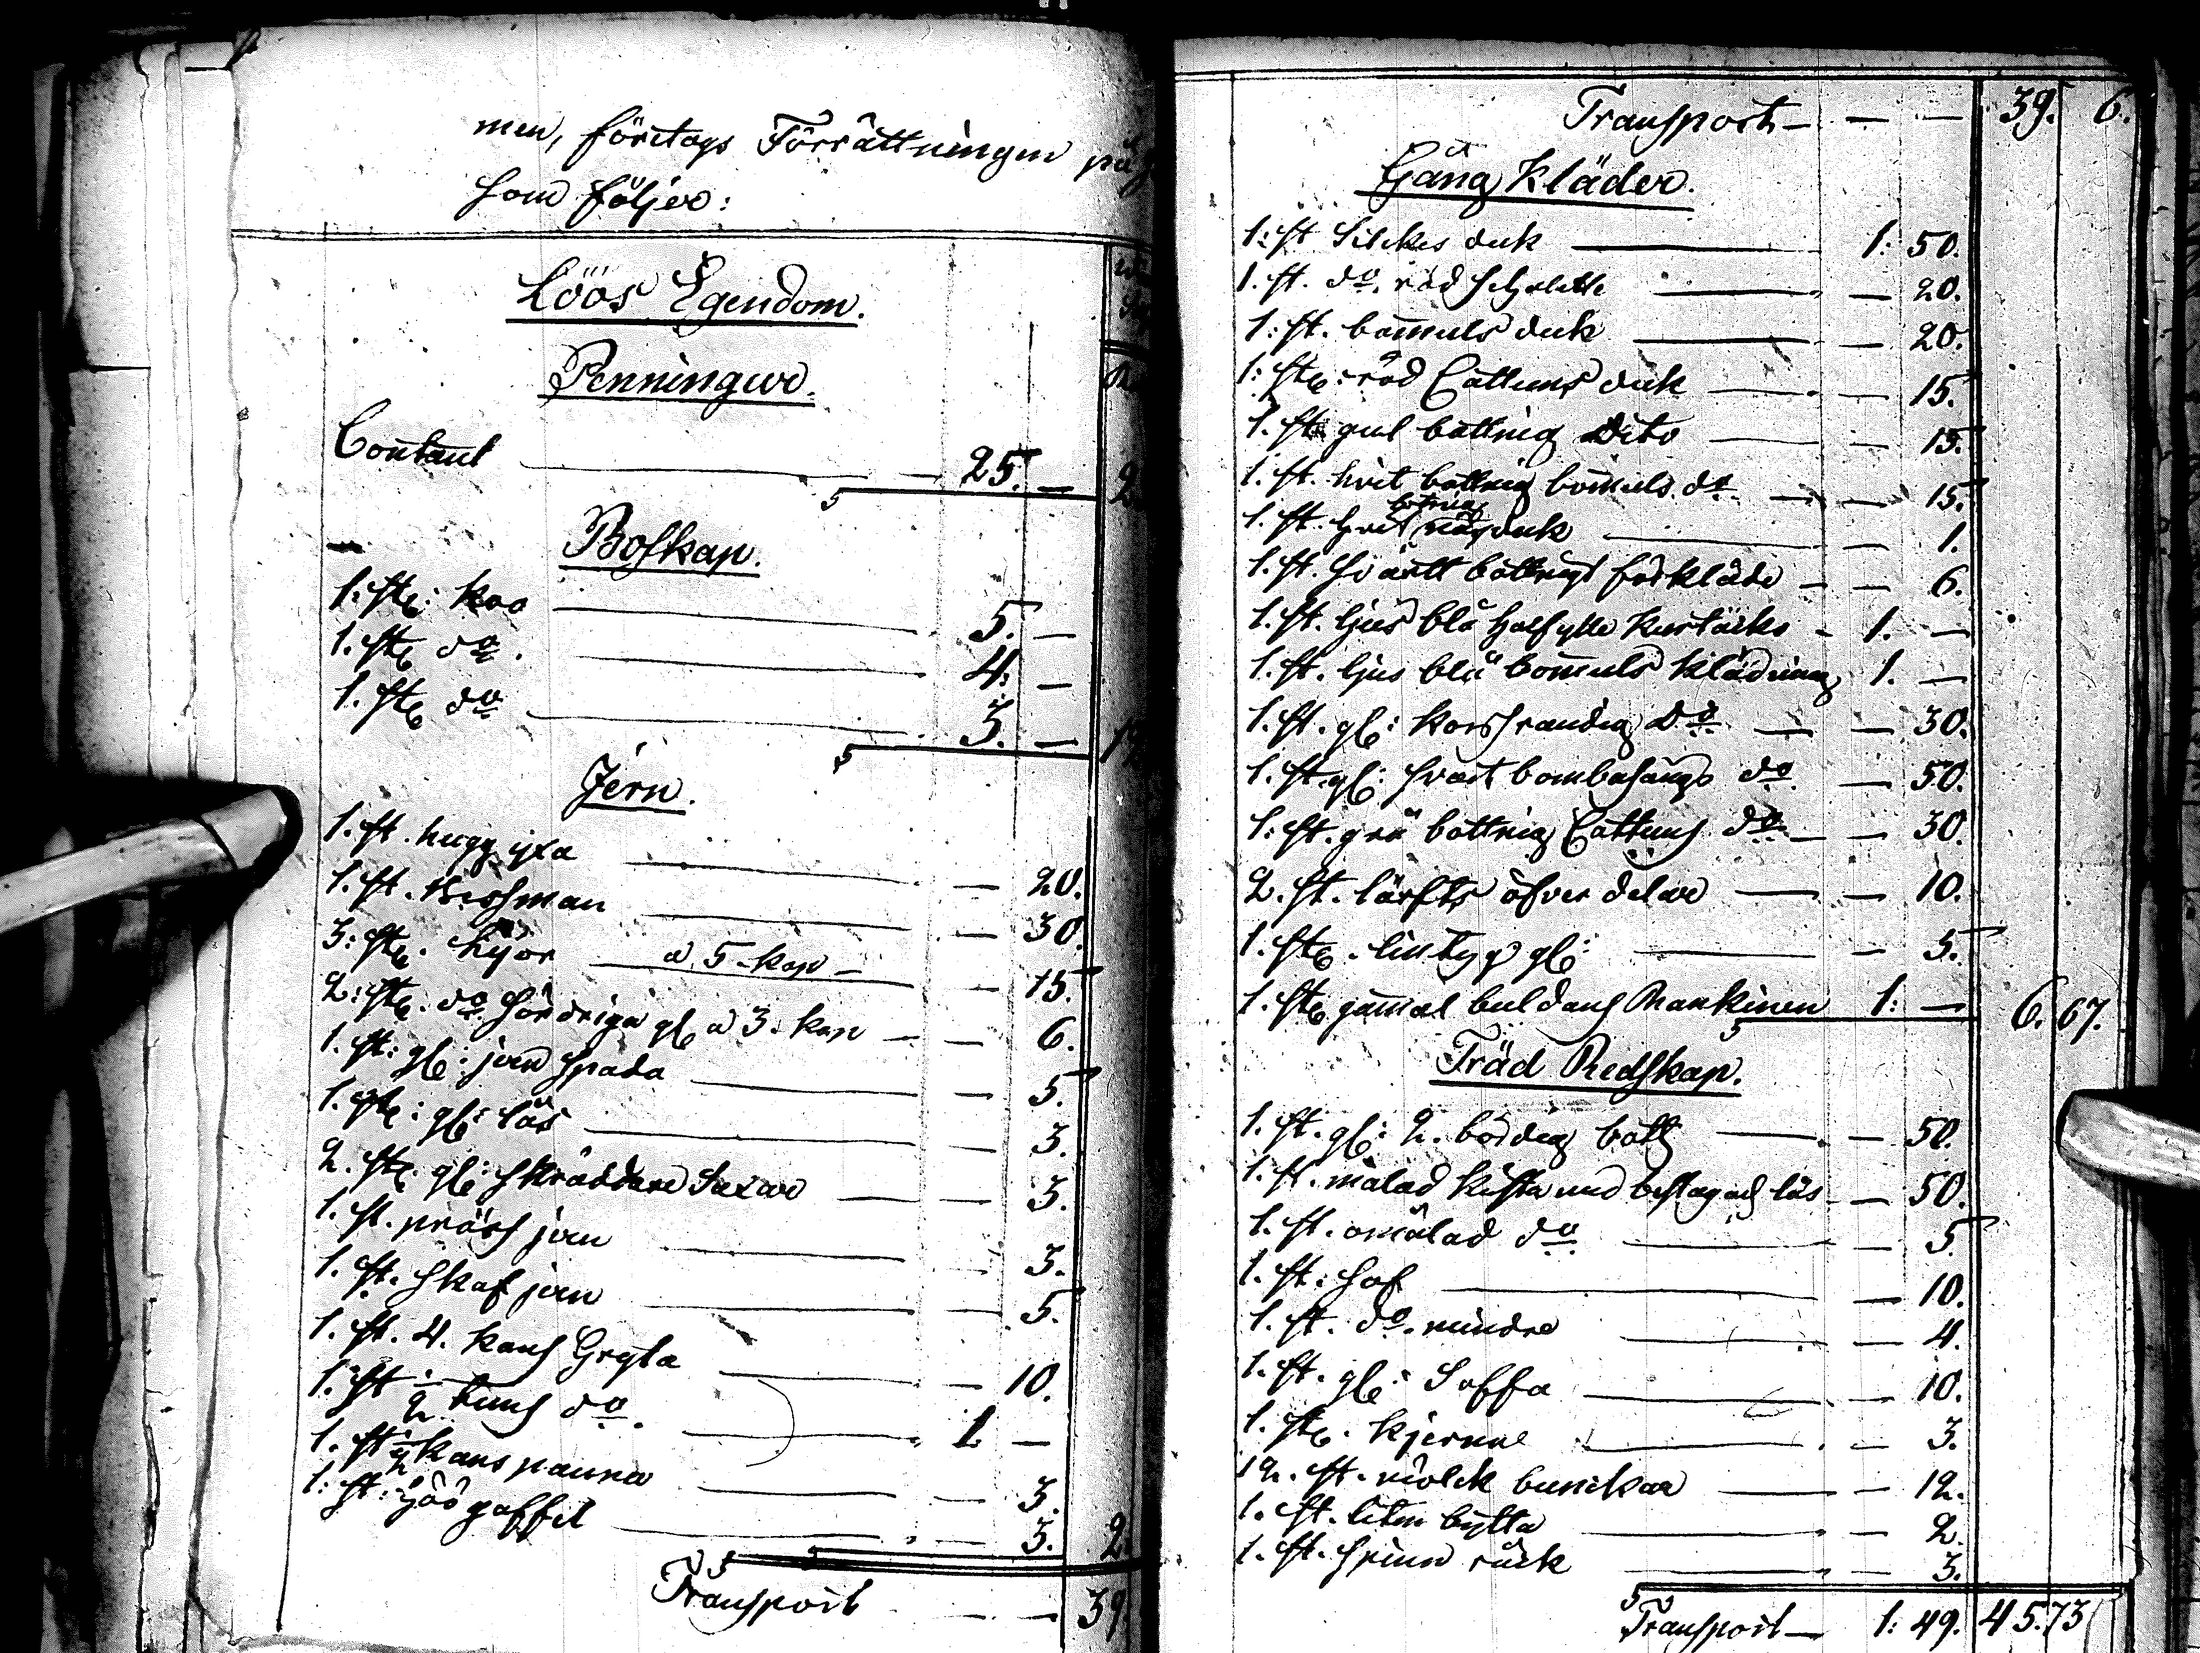 men, företogs Förrättningen på
som följer:
Löös Egendom.
Penningar.
Contant 25. — 2
Boskap.
1. st: koo 5. —
1. st do. 4: —
1. st do 3. — 12
Jern.
1. st. hugg yxa — 20.
1. st. Bessman — 30.
3: st. lijor a 5 kop — 15.
2: st. do söndriga gl a 3. kop — 6.
1. st: gl: jern spada — 5.
1. st: gl: lås — 3.
2. st. gl: skräddare Saxar — 3.
1. st. präss jern — 3.
1. st. skaf jern — 5.
1. st. 4. kans Gryta — 10.
1. st. ½ tuns do. 1. —
1. st ½ kans panna — 3.
1: st. göö gaffel — 3. 2
Transport — 39
Transport — 39. 6.
Gång Kläder.
1: st Silkes duk 1: 50.
1. st. do. röd — 20.
1: st. bomuls duk — 20.
1: st: röd Cattuns duk — 15.
1. st gul bottnig Dito — 15.
1. st. hvit bottnig bomuls do — 15.
bottnig
1. st. hvit näsduk — 1.
1. st. svartt bottnigt förkläde — 6.
1. st. ljus blå halfylle 1. —
1. st. ljus blå bomuls klädning 1. —
1. st. gl: korssrandig Do — 30.
1. st. gl: svart bombasängs do — 50.
1: st. grå bottnig Cattuns do — 30.
2. st. lärfts öfver delar — 10.
1. st. lintyg gl: — 5.
1. st gamal buldans 1: — 6. 67.
Träd Redskap.
1. st. gl: 2. bördig bått — 50.
1. st. målad kista med beslag och lås — 50.
1. st. omålad do — 5.
1. st: så — 10.
1. st. do. mindre — 4.
1. st. gl: Soffa — 10.
1. st. kjerna — 3.
12. st. miölck bunckar — 12.
1. st. liten bytta — 2.
1. st. spinn råck — 3.
Transport — 1: 49. 45.73